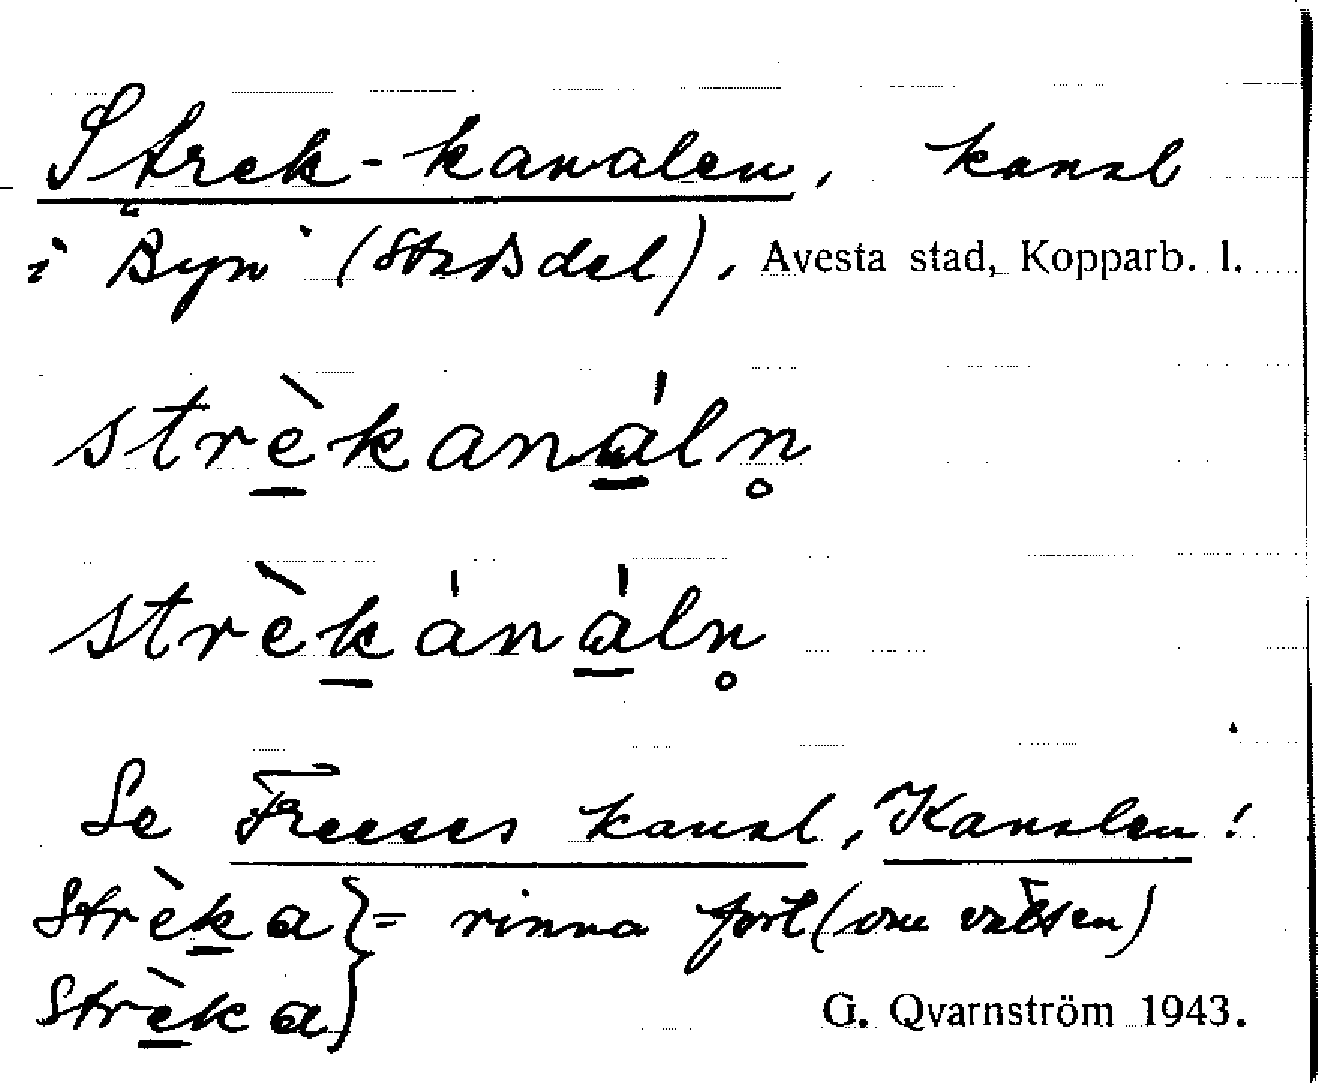 Strek-kanalen, kanal
i "Byn" (Stadsdel), Avesta stad, Kopparb. l.
strè̱kaná̱ln̥
strèḵáná̱ln̥
Se Freeses kanal, Kanalen!
Strèḵa } = rinna fort (om vatten)
Strè̱ka }
G. Qvarnström 1943.